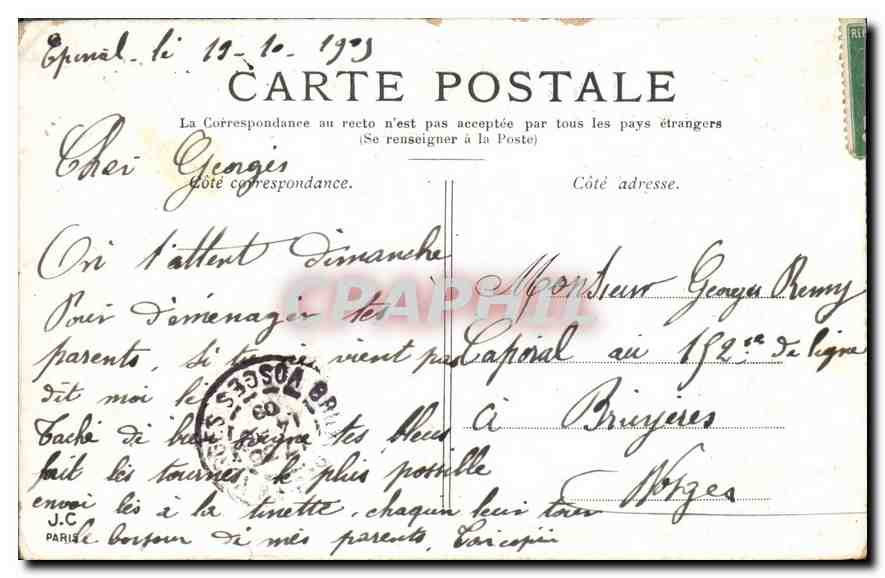 Epinal - le 19-10-1909
CARTE POSTALE
La Correspondance au recto n'est pas acceptée par tous les pays étrangers
(Se renseigner à la Poste)
Cher Georges
Côté correspondance.
On t'attent dimanche
Pour déménager tes
parents, si tu ne vient pas
dit moi le
Taché de bien soigné tes bleus
fait les tourner le plus possible
envoi les à la tinette, chacun leur tour
le bonjour de mes parents,
J.C
PARIS
Côté adresse.
Monsieur Georges Remy
Caporal au 152e de ligne
à Bruyères
Vosges
CPAPHIL
VOSGES
REP